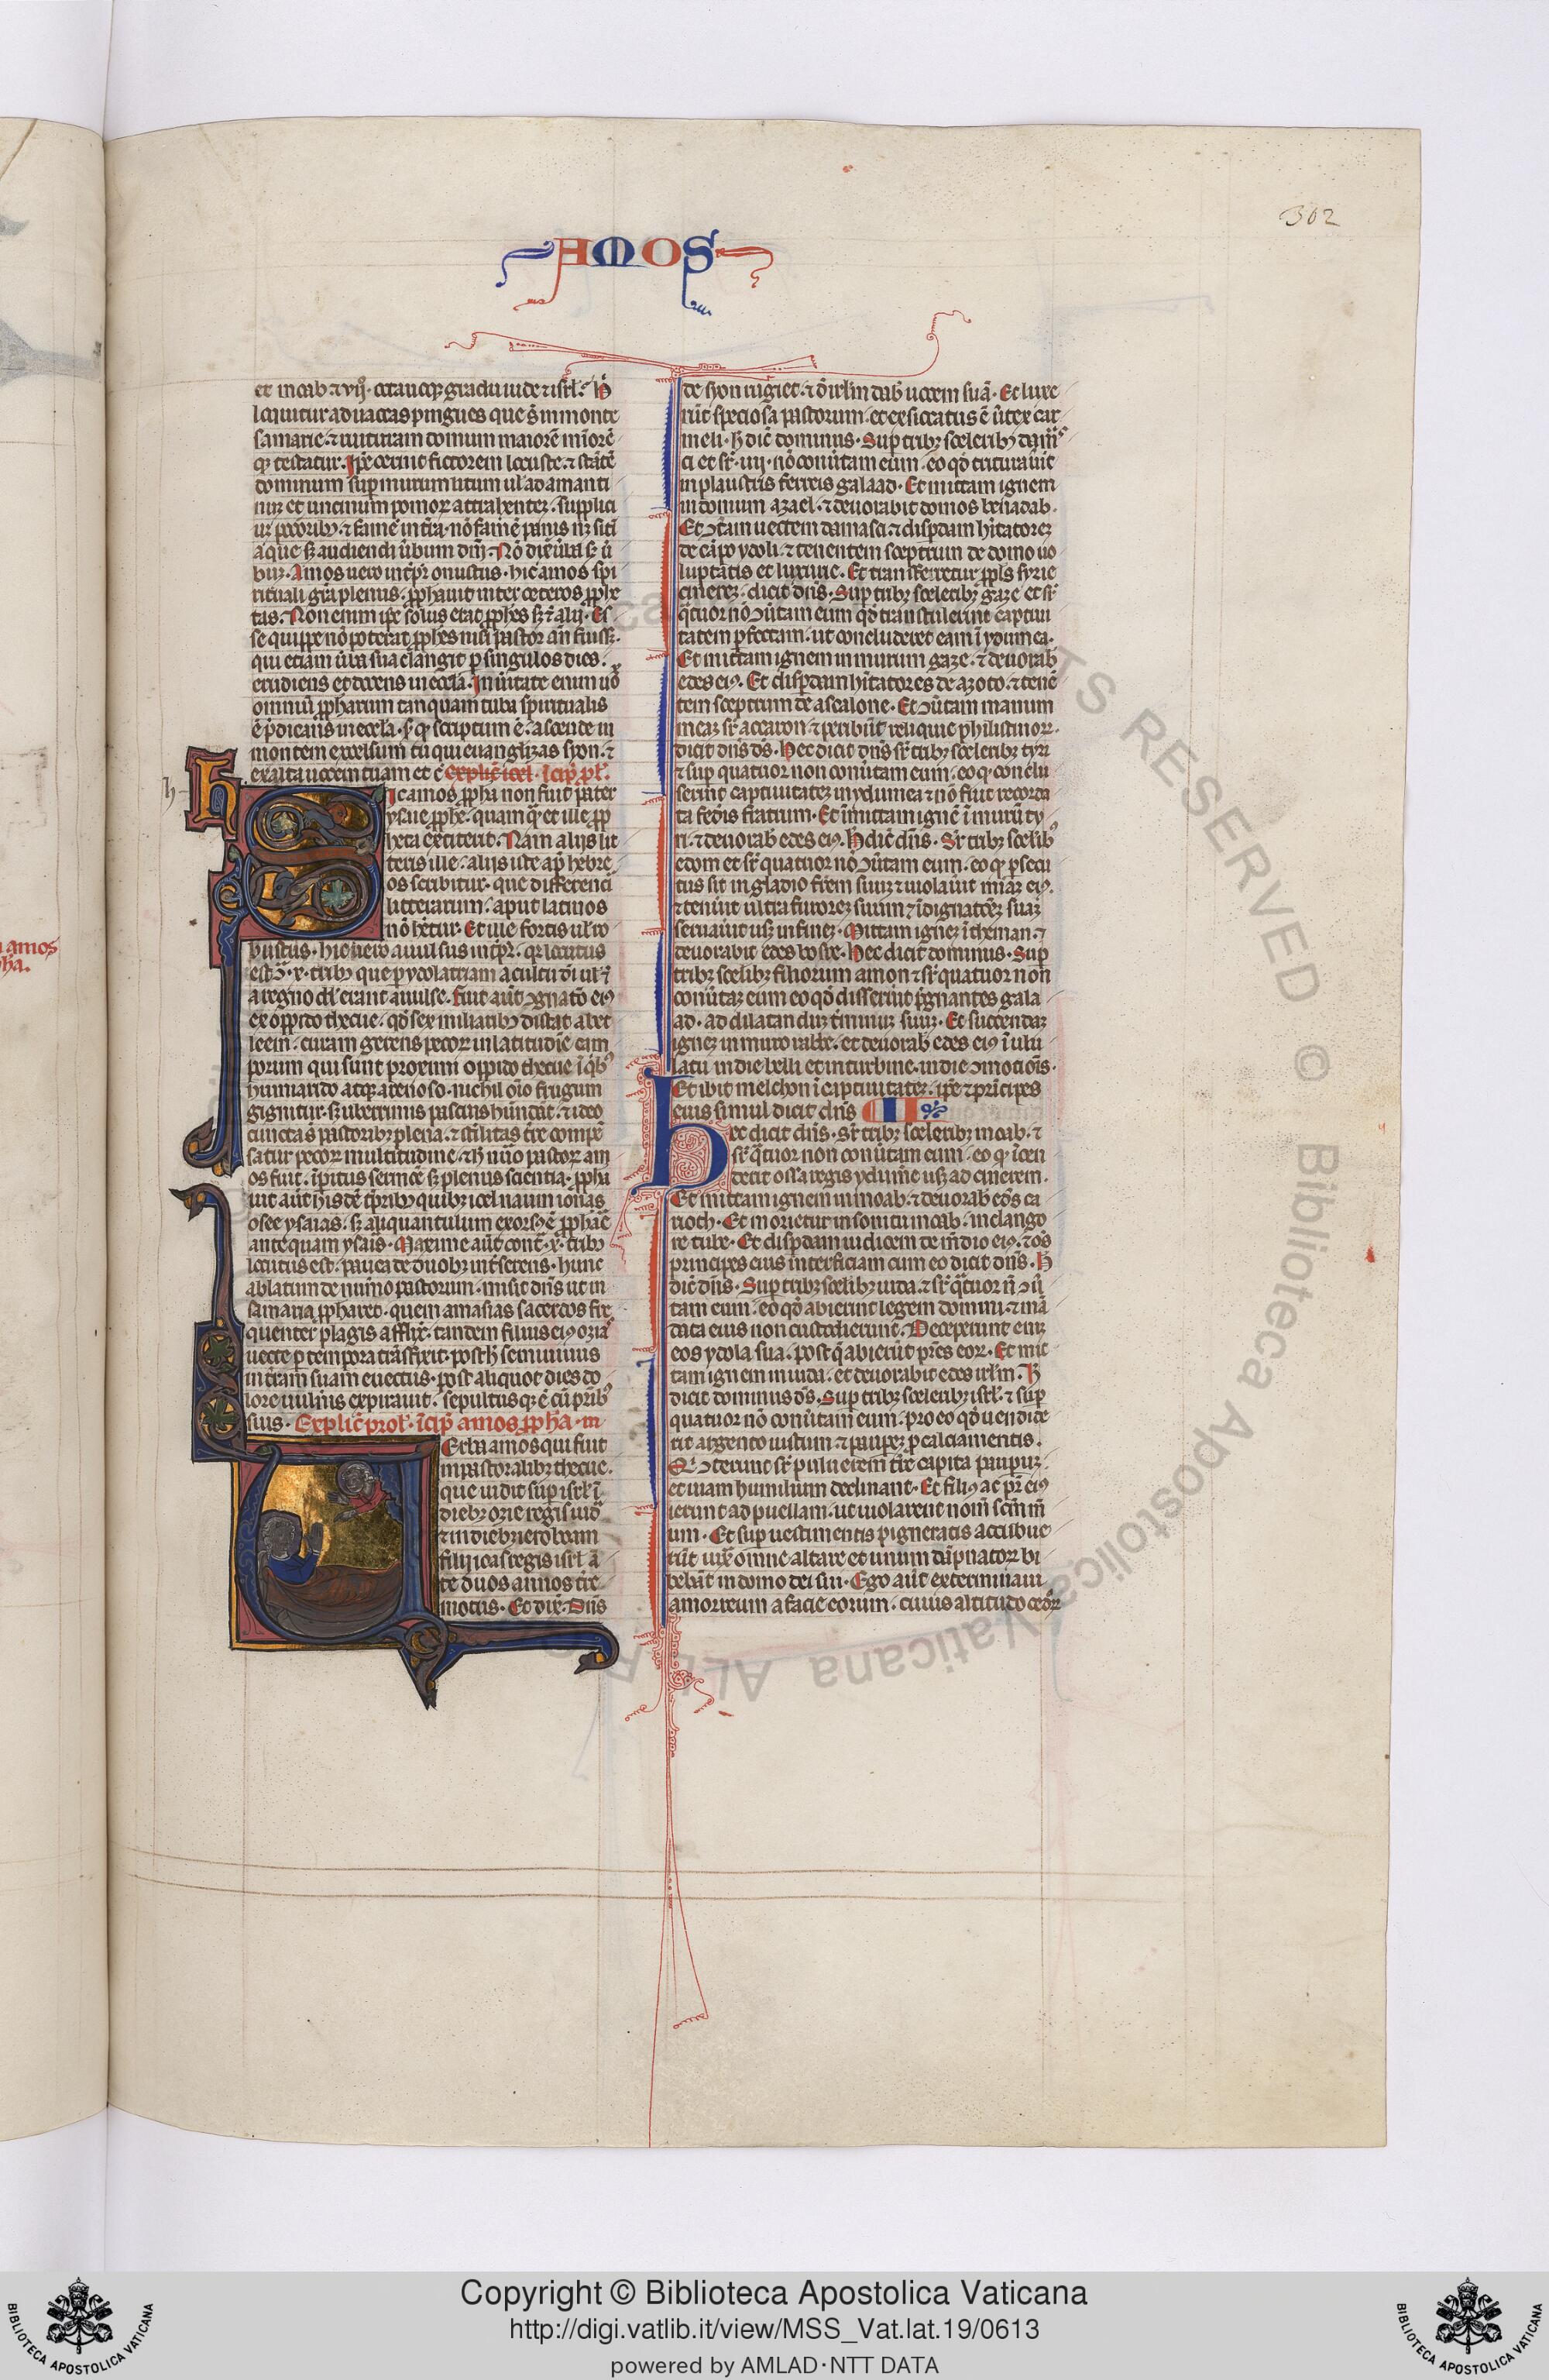 302
AMOS
et moab ⁊ vıȷͦ. octauoq; gradu iude ⁊ isrl̅. H̅
loquitur ad uaccas pingues que s̅t in monte
samarie. ⁊ ruituram domum maiore̅ ⁊ minore̅
q; testatur. Ipe̅ cernit fictorem locuste. ⁊ sta̅te̅
dominum sup̅ murum litum ul̅ adamanti
num et uncinum pomoꝝ attrahentem. supplici
um peccatoribꝫ. ⁊ fame̅ in t̅ra. no̅ fame̅ panis neq; siti̅
aque sꝫ audiendi u̅bum dn̅i.
Amos uero int̅pr̅ onustus. hic amos spi
rituali gr̅a plenus. ꝓphauit inter ceteros ꝓphe
tas. Non enim ipe̅ solus erat ꝓph̅es sꝫ ⁊ alij. Es
se quippe no̅ poterat ꝓph̅es nisi pastor an̅ fuiss̅.
qui etiam u̅ba sua clangit p singulos dies.
erudiens et docens in eccl̅a. In u̅itate enim uo̅
omniu̅ ꝓpharum tanquam tuba spiritualis
e̅ p̅dicans in eccl̅a. sic̅ q; scriptum e̅. ascende in
montem excelsum tu qui euanglizas syon. ⁊
exalta uocem tuam et c̅ Explic̅ ioel. Icip̅ pl̅.
h
Hic amos ꝓpha non fuit pater
ysaie ꝓphe. quamq̅ et ille ꝓp
heta extiterit. Nam alijs lit
teris ille. alijs iste ap̅ hebre
os scribitur. que differenci
litterarum. aput latinos
no̅ h̅etur. Et ille fortis ul̅ ro
bustus. hic uero auulsus int̅pr̅. qr̅ locutus
est ꝯ̅. x. tribꝫ que p ydolatriam a cultu di̅ uel
a regno dd̅ erant auulse. Fuit aut̅ ꝯgnat̅o eiꝰ
ex oppido thecue. qd̅ sex miliaribꝫ distat a bet
leem. curam gerens pecoꝝ in latitudi̅e cam
porum qui sunt proximi oppido thecue i̅ qͥbꝫ
humando atq; arenoso. nichil oi̅o frugum
gignitur. sꝫ uberrimis pascuis habundat. ⁊ ideo
cuncta s̅ pastoribꝫ plena. ⁊ st̅ilitas t̅re compe̅
satur pecoꝝ multitudine. ⁊ h̅ nu̅o pastoꝝ am
os fuit. i̅pitus sermo̅e sꝫ plenus scientia. ꝓpha
uit aut̅ hisde̅ t̅pribꝫ quibꝫ ioel naum ionas
osee ysaias. sꝫ aliquantulum exorsꝰ e̅ ꝓpha̅e̅
antequam ysaias. Maxime aut̅ cont̅. x. tribꝫ
locutus est. pauca de duobꝫ int̅serens. hunc
ablatum de nu̅o pastorum. misit dn̅s ut in
samaria ꝓpharet. quem amasias sacerdos fre
quenter plagis afflix̅. tandem filius eiꝰ ozias
uecte p tempora tra̅sfixit. post h̅ semiuiuus
in t̅ram suam euectus. post aliquot dies do
lore uuln̅is expirauit. sepultusq; e̅ cu̅ pr̅ibꝫ
suis. Explic̅ prol̅. Icip̅ amos ꝓph̅a. in
Uerba amos qui fuit
in pastoralibꝫ thecue.
que uidit sup̅ isrl̅ i̅
diebꝫ ozie regis iud̅
⁊ in diebꝫ ieroboam
filij ioas regis isrl̅ a̅
te duos annos t̅re
motus. Et dix̅. Dn̅s
de syon rugiet. ⁊ d̅ irlm̅ dab̅ uocem sua̅. Et luxe
ru̅t speciosa pastorum. et exsiccatus e̅ u̅tex car
meli. H̅ dic̅ dominus. Sup̅ tribꝫ sceleribꝫ dam̅s
ci et sr̅. iiij. no̅ conu̅tam eum. eo qd̅ triturau̅it
in plaustris ferreis galaad. Et mittam ignem
in domum azael. ⁊ deuorabit domos benadab.
Et ꝯt̅am uectem damasci. ⁊ disp̅dam h̅itatoreꝫ
de ca̅po ydoli. ⁊ tenentem sceptrum de domo uo
luptatis et luxurie. Et transferretur ppl̅s syrie
cirenen. dicit dn̅s. Sup̅ tribꝫ sceleribꝫ gaze et sr̅
q̅tuor no̅ ꝯu̅tam eum qd̅ transtulerint captiui
tatem p̅fectam. ut concluderet eam i̅ ydumea.
Et mittam ignem in murum gaze. ⁊ deuorab̅
edes eiꝰ. Et disp̅dam h̅itatores de azoto. ⁊ tene̅
tem sceptrum de ascalone. Et ꝯu̅tam manum
meaꝫ sr̅ accaron ⁊ peribu̅t reliquie philistinoꝝ.
dicit dn̅s ds̅. Hec dicit dn̅s sr̅ tribꝫ sceleribꝫ tyri
⁊ sup quatuor non conu̅tam eum. eo q; conclu
serint captiuitateꝫ in ydumea ⁊ no̅ fiut recorda
ta fed̅is fratrum. Et i̅mittam igne̅ i̅ muru̅ ty
ri. ⁊ deuorab̅ edes eiꝰ. H̅ dic̅ dn̅s. Sr̅ tribꝫ scelibꝫ
edom et sr̅ quatuor no̅ ꝯu̅tam eum. eo q; p̅secu
tus sit in gladio fr̅em suuꝫ ⁊ uiolau̅it mi̅am eiꝰ.
⁊ tenu̅it ultra furoreꝫ suum ⁊ i̅dignat̅oeꝫ suaꝫ
seruau̅it usq; in fineꝫ. Mittam igneꝫ i̅ theman. ⁊
deuorabit edes bosre. Hec dicit dominus. Sup̅
tribꝫ scelibꝫ filiorum amon ⁊ sr̅ quatuor non
conu̅taꝫ eum eo qd̅ disseru̅it p̅gnantes gala
ad. ad dilatanduꝫ t̅minuꝫ suuꝫ. Et succendaꝫ
igneꝫ in muro rabbe. et deuorab̅ edes eiꝰ i̅ ulu
latu in die belli et in turbine. in die ꝯmotio̅is.
Et ibit melchon i̅ captiuitateꝫ. ipe̅ ⁊ pri̅cipes
eius simul dicit dn̅s II
Hec dicit dn̅s. Sr̅ tribꝫ sceleribꝫ moab. ⁊
sr̅ q̅tuor non conu̅tam eum. eo q; i̅cen
derit ossa regis ydume̅ usq; ad cinerem.
Et mittam ignem in moab. ⁊ deuorab̅ ed̅s ca
rioth. Et morietur in sonitu moab. in clango
re tube. Et disp̅dam iudicem de m̅dio eiꝰ. ⁊ o̅s
principes eius interficiam cum eo dicit dn̅s. H̅
dic̅ dn̅s. Sup̅ tribꝫ scelibꝫ iuda. ⁊ sr̅ q̅tuor n̅ ꝯu̅
tam eum. eo qd̅ abierint legem domini. ⁊ ma̅
data eius non custodierunt. Deceperunt eni̅
eos ydola sua. post q̅ abieru̅t pr̅es eoꝝ. Et mit
tam ignem in iuda. et deuorabit edes irlm̅. H̅
dicit dominus ds̅. Sup̅ tribꝫ sceleribꝫ isrl̅. ⁊ sup̅
quatuor no̅ conu̅tam eum. pro eo qd̅ uendide
rit argento iustum ⁊ paupeꝫ p calciamentis.
Qͥ ꝯterunt sr̅ puluerem t̅re capita paupuꝫ.
et uiam humilium declinant. Et filiꝰ ac pr̅ eiꝰ
ierunt ad puellam. ut uiolarent nom̅ scm̅ m̅
um. Et sup uestimentis pigneratis accubue
ru̅t iux̅ omne altare et uinum da̅pnatoꝝ bi
beba̅t in domo dei sui. Ego aut̅ exterminaui
amorreum a facie eorum. cuius altitudo cedroꝝ
amos
pha.
Copyright © Biblioteca Apostolica Vaticana
http://digi.vatlib.it/view/MSS_Vat.lat.19/0613
powered by AMLAD·NTT DATA
BIBLIOTECA APOSTOLICA VATICANA
BIBLIOTECA APOSTOLICA VATICANA